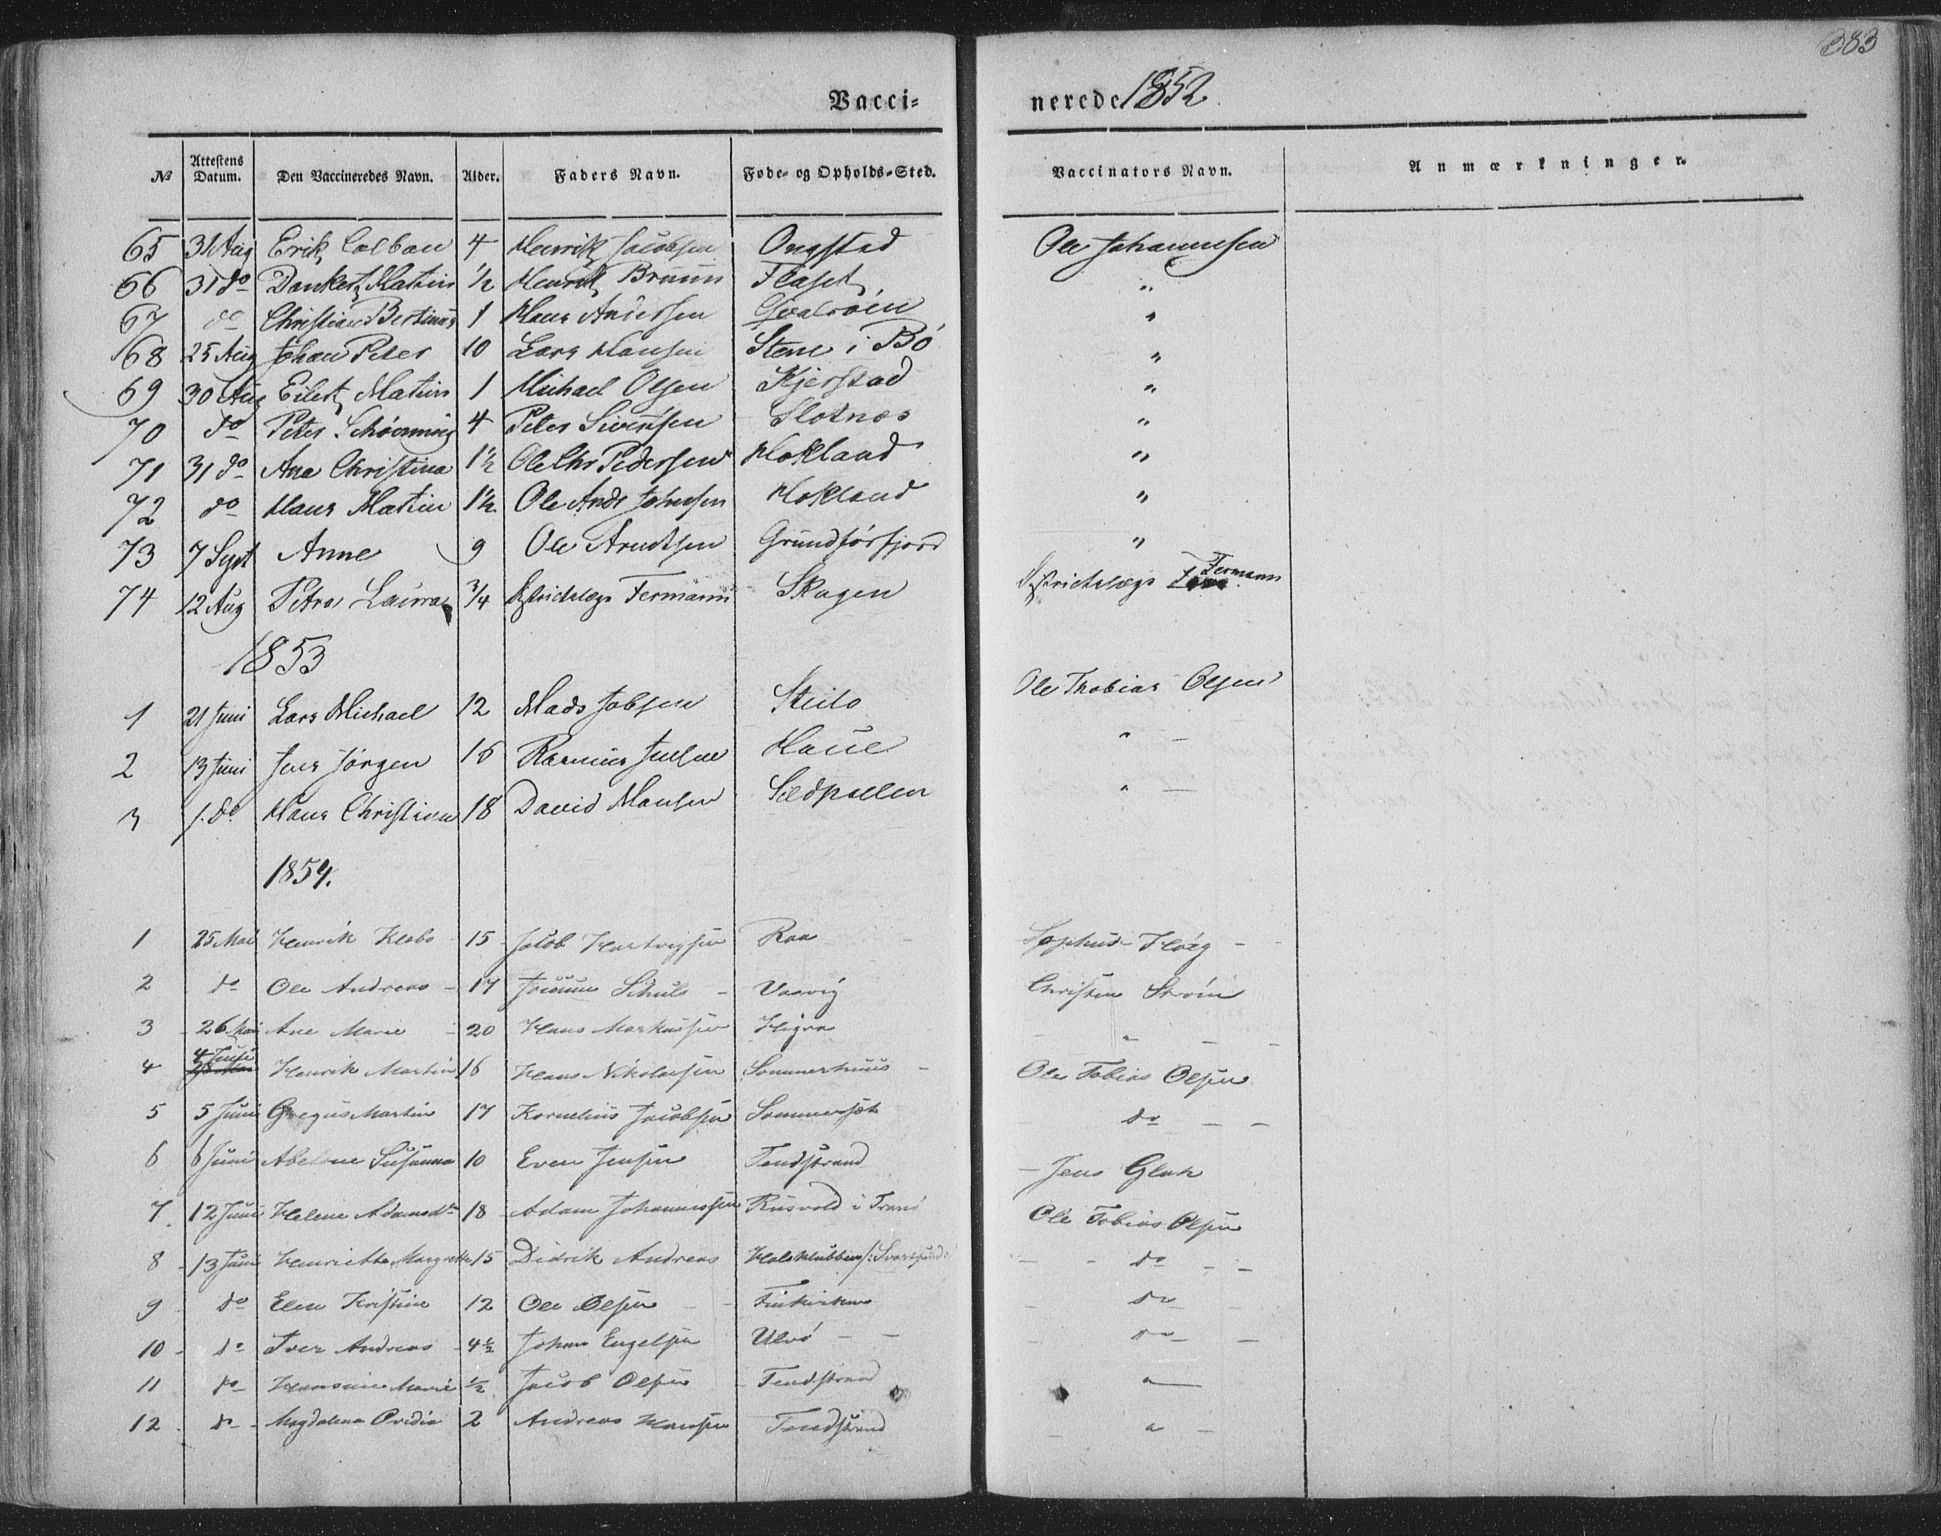 383
Vacci- nerede 1852.
No Attestens Datum. Den Vaccineredes Navn. Alder. Faders Navn. Føde- og Opholds-Sted. Vaccinators Navn. Anmærkninger.
65 31 Aug Erik Colban 4 Henrik Jacobsen Ongstad Ole Johannesen
66 31 do Dankert Matin 1/2 Henrik Bruun Flaset "
67 do Christian Bertinus 1 Hans Andersen "
68 25 Aug Johan Peter 10 Lars Hansen Stene i Bö "
69 30 Aug Eilert Matin 1 Michael Olsen Kjerstad "
70 do Peter Schönning 4 Peter Sivertsen Slotnæs "
71 31 do Ana Christina 1 1/2 Ole Chr Pedersen Hokland "
72 do Hans Matin 1 1/2 Ole Andr Johnsen Hokland "
73 7 Sept Anne 9 Ole Arntsen Grundförfjord "
74 12 Aug Petra Laura 3/4 Districtslæge Fermann Skagen Districtslæge Fermann
1853
1 21 Juni Lars Michael 12 Mads Jobsen Steilo Ole Thobias Olsen
2 13 Juni Jens Jörgen 16 Rasmus Juelsen Haue " -
3 1. do Hans Christian 18 David Hansen Sildpollen " -
1854.
1 25 Mai Henrik Klebo 15 Jakob Hartvigsen Raa Sophus Høeg
2 do Ole Andreas 17 Schults Vaavig Christen Ström
3 26 Mai Ane Marie 20 Hans Markussen Higra "
4 4 Juni Henrik Martin 16 Hans Nikolaisen Sommerhuus Ole Tobias Olsen
5 5 Juni Gregus Martin 17 Kornelius Jacobsen Sommersæt do
6 6 Juni Abelone Susanna 10 Even Jensen Tendstrand Jens Gluk
7. 12 Juni Helene Adamsdtr 18 Adam Johannessen Rusvold i Tranö Ole Tobias Olsen
8 13 Juni Henriette Margrethe 15 Didrik Andreas Holsklubben /:Svartsund: do
9 do Elen Kristine 12 Ole Olsen Finkirken do
10 do Iver Andreas 4 1/2 Johan Engelsen Ulvö do
11 do Hansine Marie 1/2 Jacob Olsen Tendstrand "
12 do Magdalena Ovedia 2 Andreas Hansen Tendstrand "